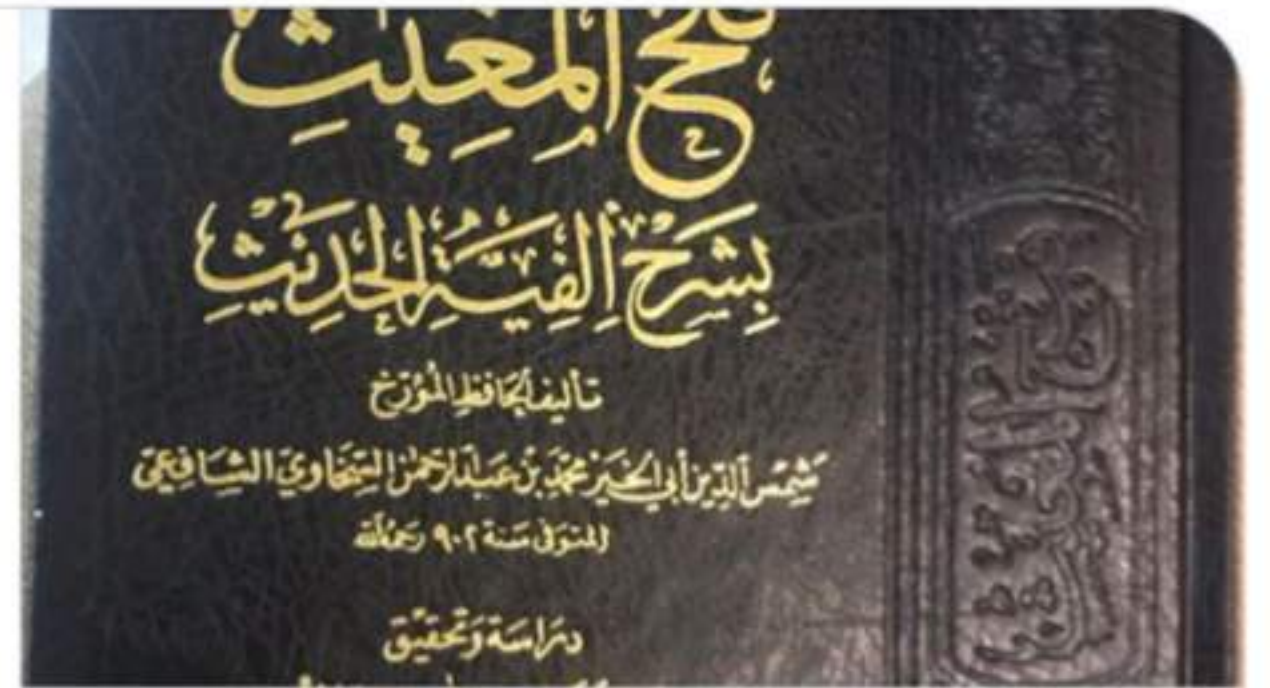 فتح المغيث
بِشَرْحِ ألفِيَّةِ الحَدِيْثِ
تأليف الحافظ المؤرّخ
شمس الدين أبي الخير محمد بن عبد الرحمن السخاوي الشافعي
المتوفى سنة ٩٠٢ رحمه الله
دراسة وتحقيق